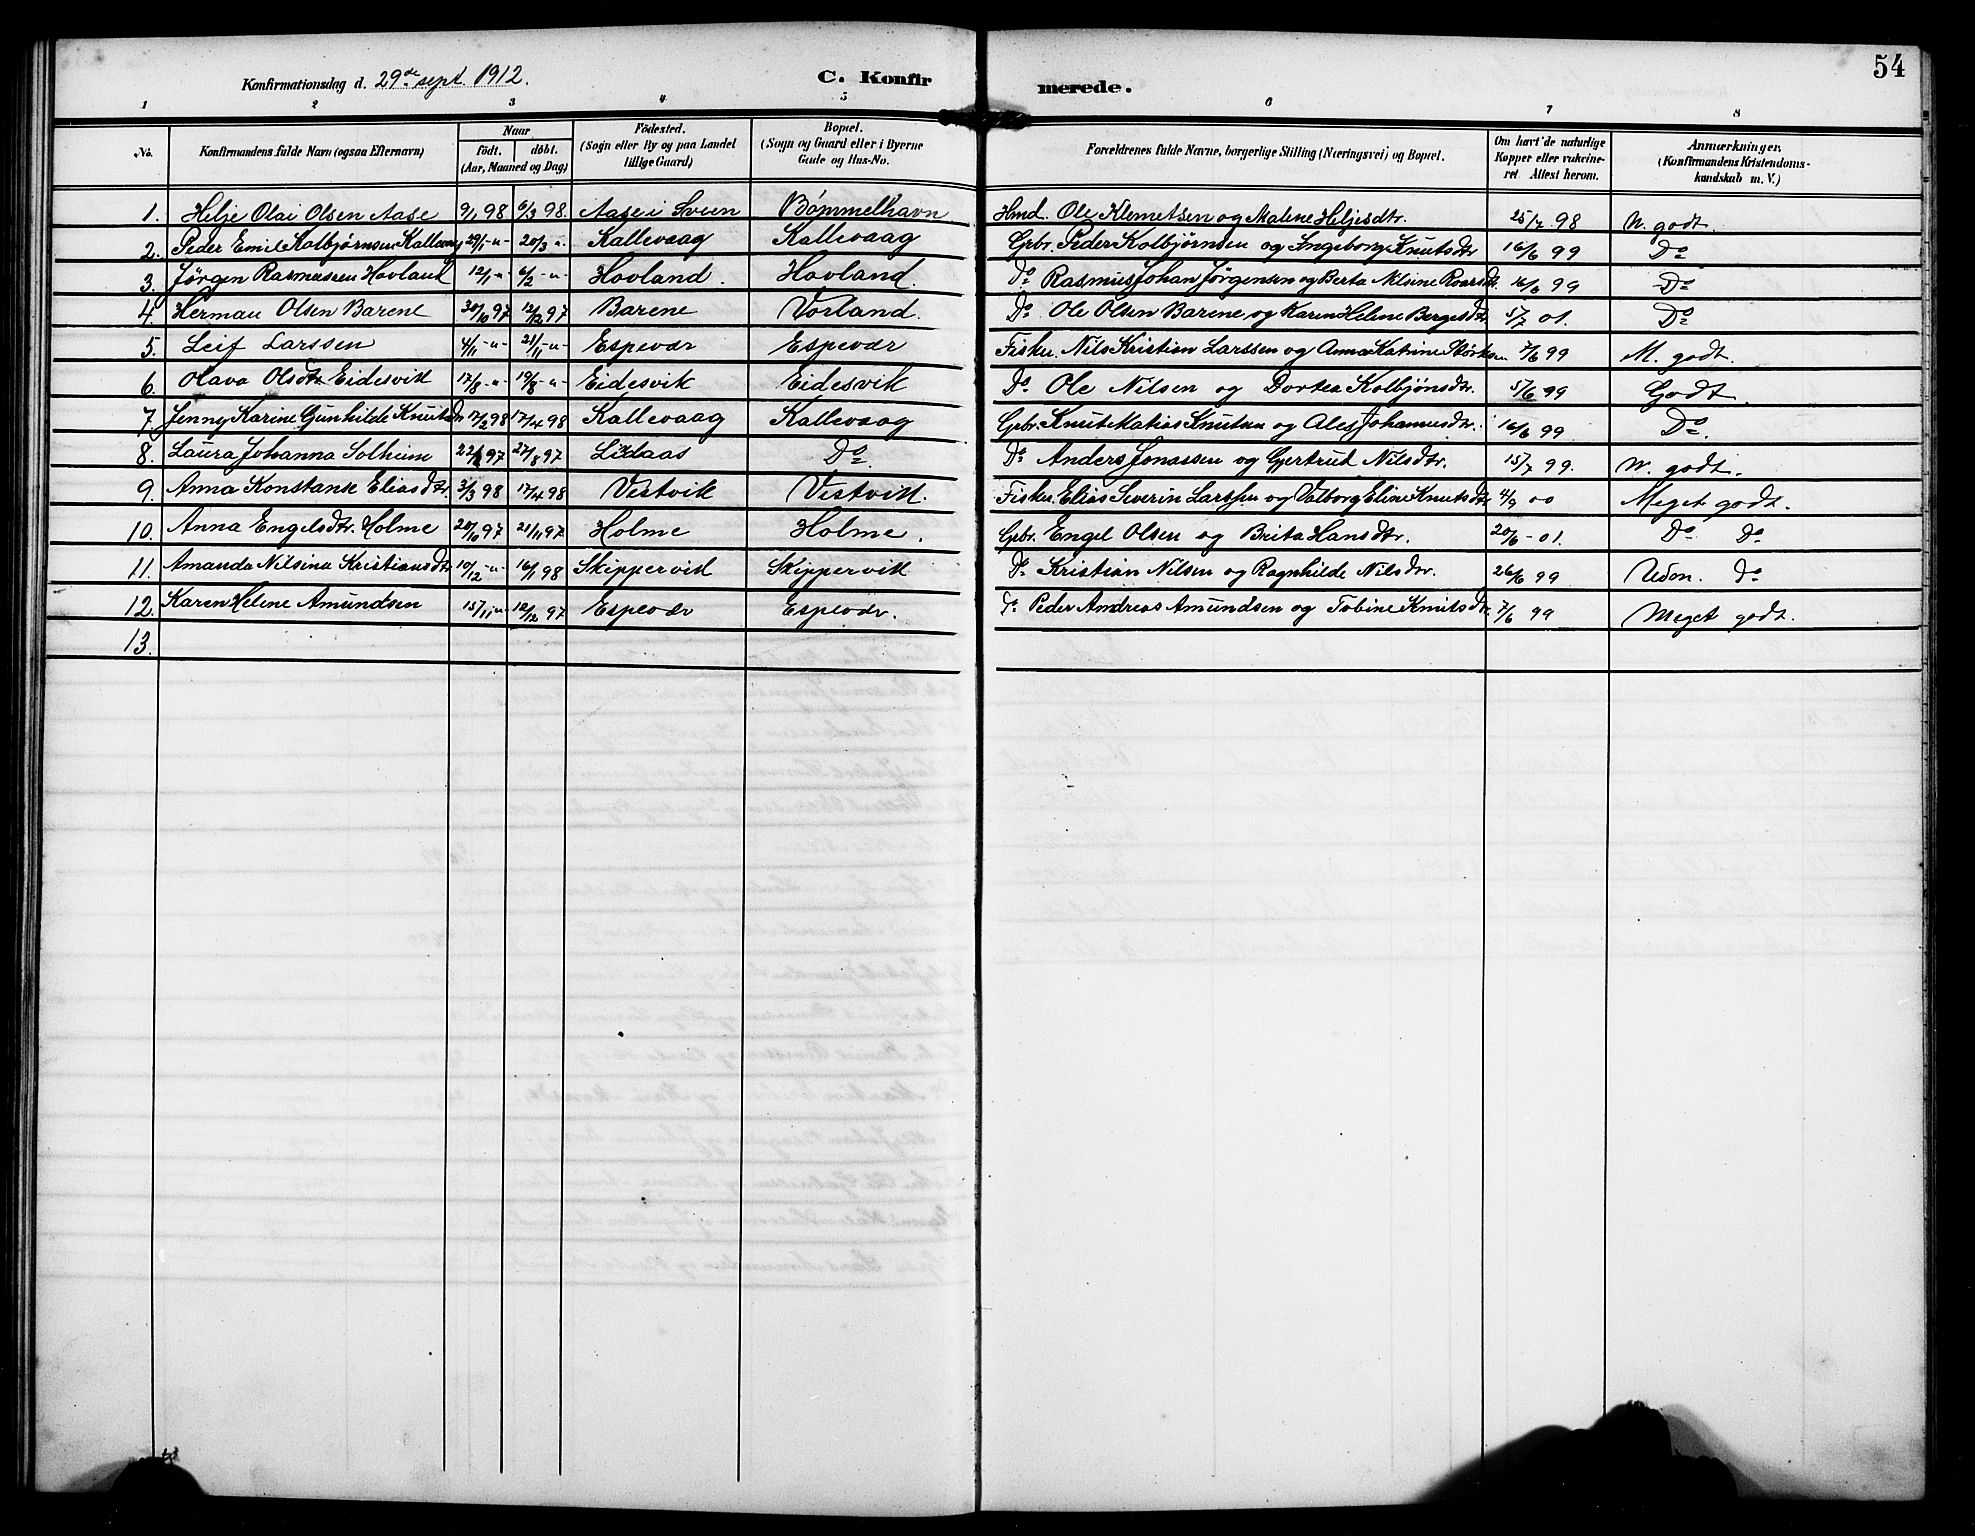 54
Konfirmationsdag d. 29de sept. 1912. C. Konfirmerede.
1 2 3 4 5 6 7 8
No. Konfirmandens fulde Navn (ogsaa Efternavn) Naar födt. döbt. (Aar, Maaned og Dag) Födested. (Sogn eller By og paa Landet tillige Gaard) Bopæl. (Sogn og Gaard eller i Byerne Gade og Hus-No. Forældrenes fulde Navne, borgerlige Stilling (Næringsvei) og Bopæl. Om havt de naturlige Kopper eller vakcineret. Attest herom. Anmærkninger. (Konfirmandens Kristendomskundskab m. V.)
1. Helje Olai Olsen Aase 9/1 98 6/3 98 Aase i Sveen Bømmelhavn Hmd. Ole Klemetsen og Malene Heljesdtr. 25/7 98 N. godt.
2. Peder Emil Kolbjørnsen Kallevaag 29/1 -"- 20/3 ". Kallevaag Kallevaag Grbr. Peder Kolbjørnsen og Ingeborg Knutsdtr 16/6 99 Do
3. Jørgen Rasmussen Hovland 12/1 -"- 6/2 -"- Hovland. Hovland. Do Rasmus Johan Jørgensen og Berta Nilsine Roarsdtr. 16/6 99 Do
4. Herman Olsen Barene 30/10 97 12/12 97 Barene Vorland. Do Ole Olsen Barene og Karen Helene Bergesdtr 5/7 01. Do
5. Leif Larssen 4/11 -"- 21/11 -"- Espevær Espevær Fisker. Nils Kristian Larssen og Anna Katrine Størksen 7/6 99 M. godt.
6. Olava Olsdtr. Eidesvik 17/8 -"- 19/8 -"- Eidesvik Eidesvik Do Ole Nilsen og Dortea Kolbjønsdtr. 5/6 99 Godt.
7. Jenny Karine Gunhilde Knutsdtr 17/2 98 17/4 98 Kallevaag Kallevaag Grbr. Knut Matias Knutsen og Ales Johannesdtr. 16/6 99 Do.
8. Laura Johanna Solheim 97 27/8 97 Liklaas Do Do Anders Jonassen og Gjertrud Nilsdtr. 15/7 99. N. godt.
9. Anna Konstanse Eliasdtr. 3/3 98 17/4 98 Vestvik Vestvik. Fisker. Elias Severin Larssen og Valborg Eline Knutsdtr 4/9 00 Meget godt.
10. Anna Engelsdtr. Holme 20/10 97 21/11 97 Holme Holme. Grbr. Engel Olsen og Brita Hansdtr. 20/6 - 01. Do Do
11. Amanda Nilsina Kristiansdtr 10/12 -"- 16/1 98 Skippervik Skippervik Do Kristian Nilsen og Ragnhilde Nilsdtr. 26/6 99 Udm. Do
12. Karen Helene Amundsen 15/11 " 12/12 97 Espevær Espevær. Do Peder Andreas Amundsen og Tobine Knutsdtr. 7/6 99 Meget godt.
13.